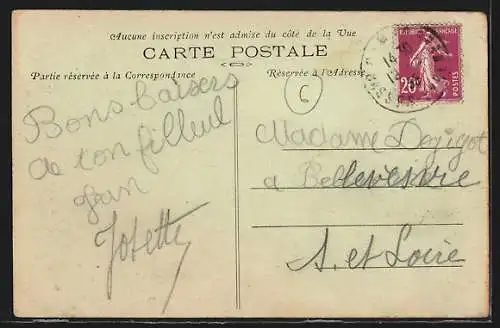 Aucune inscription n'est admise du côté de la Vue
CARTE POSTALE
Partie réservée à la Correspondance
Réservée à l'Adresse
C
20c
POSTES
Bons baisers
de ton filleul
Jean
Josette
Madame
a Bellevesvre
S. et Loire